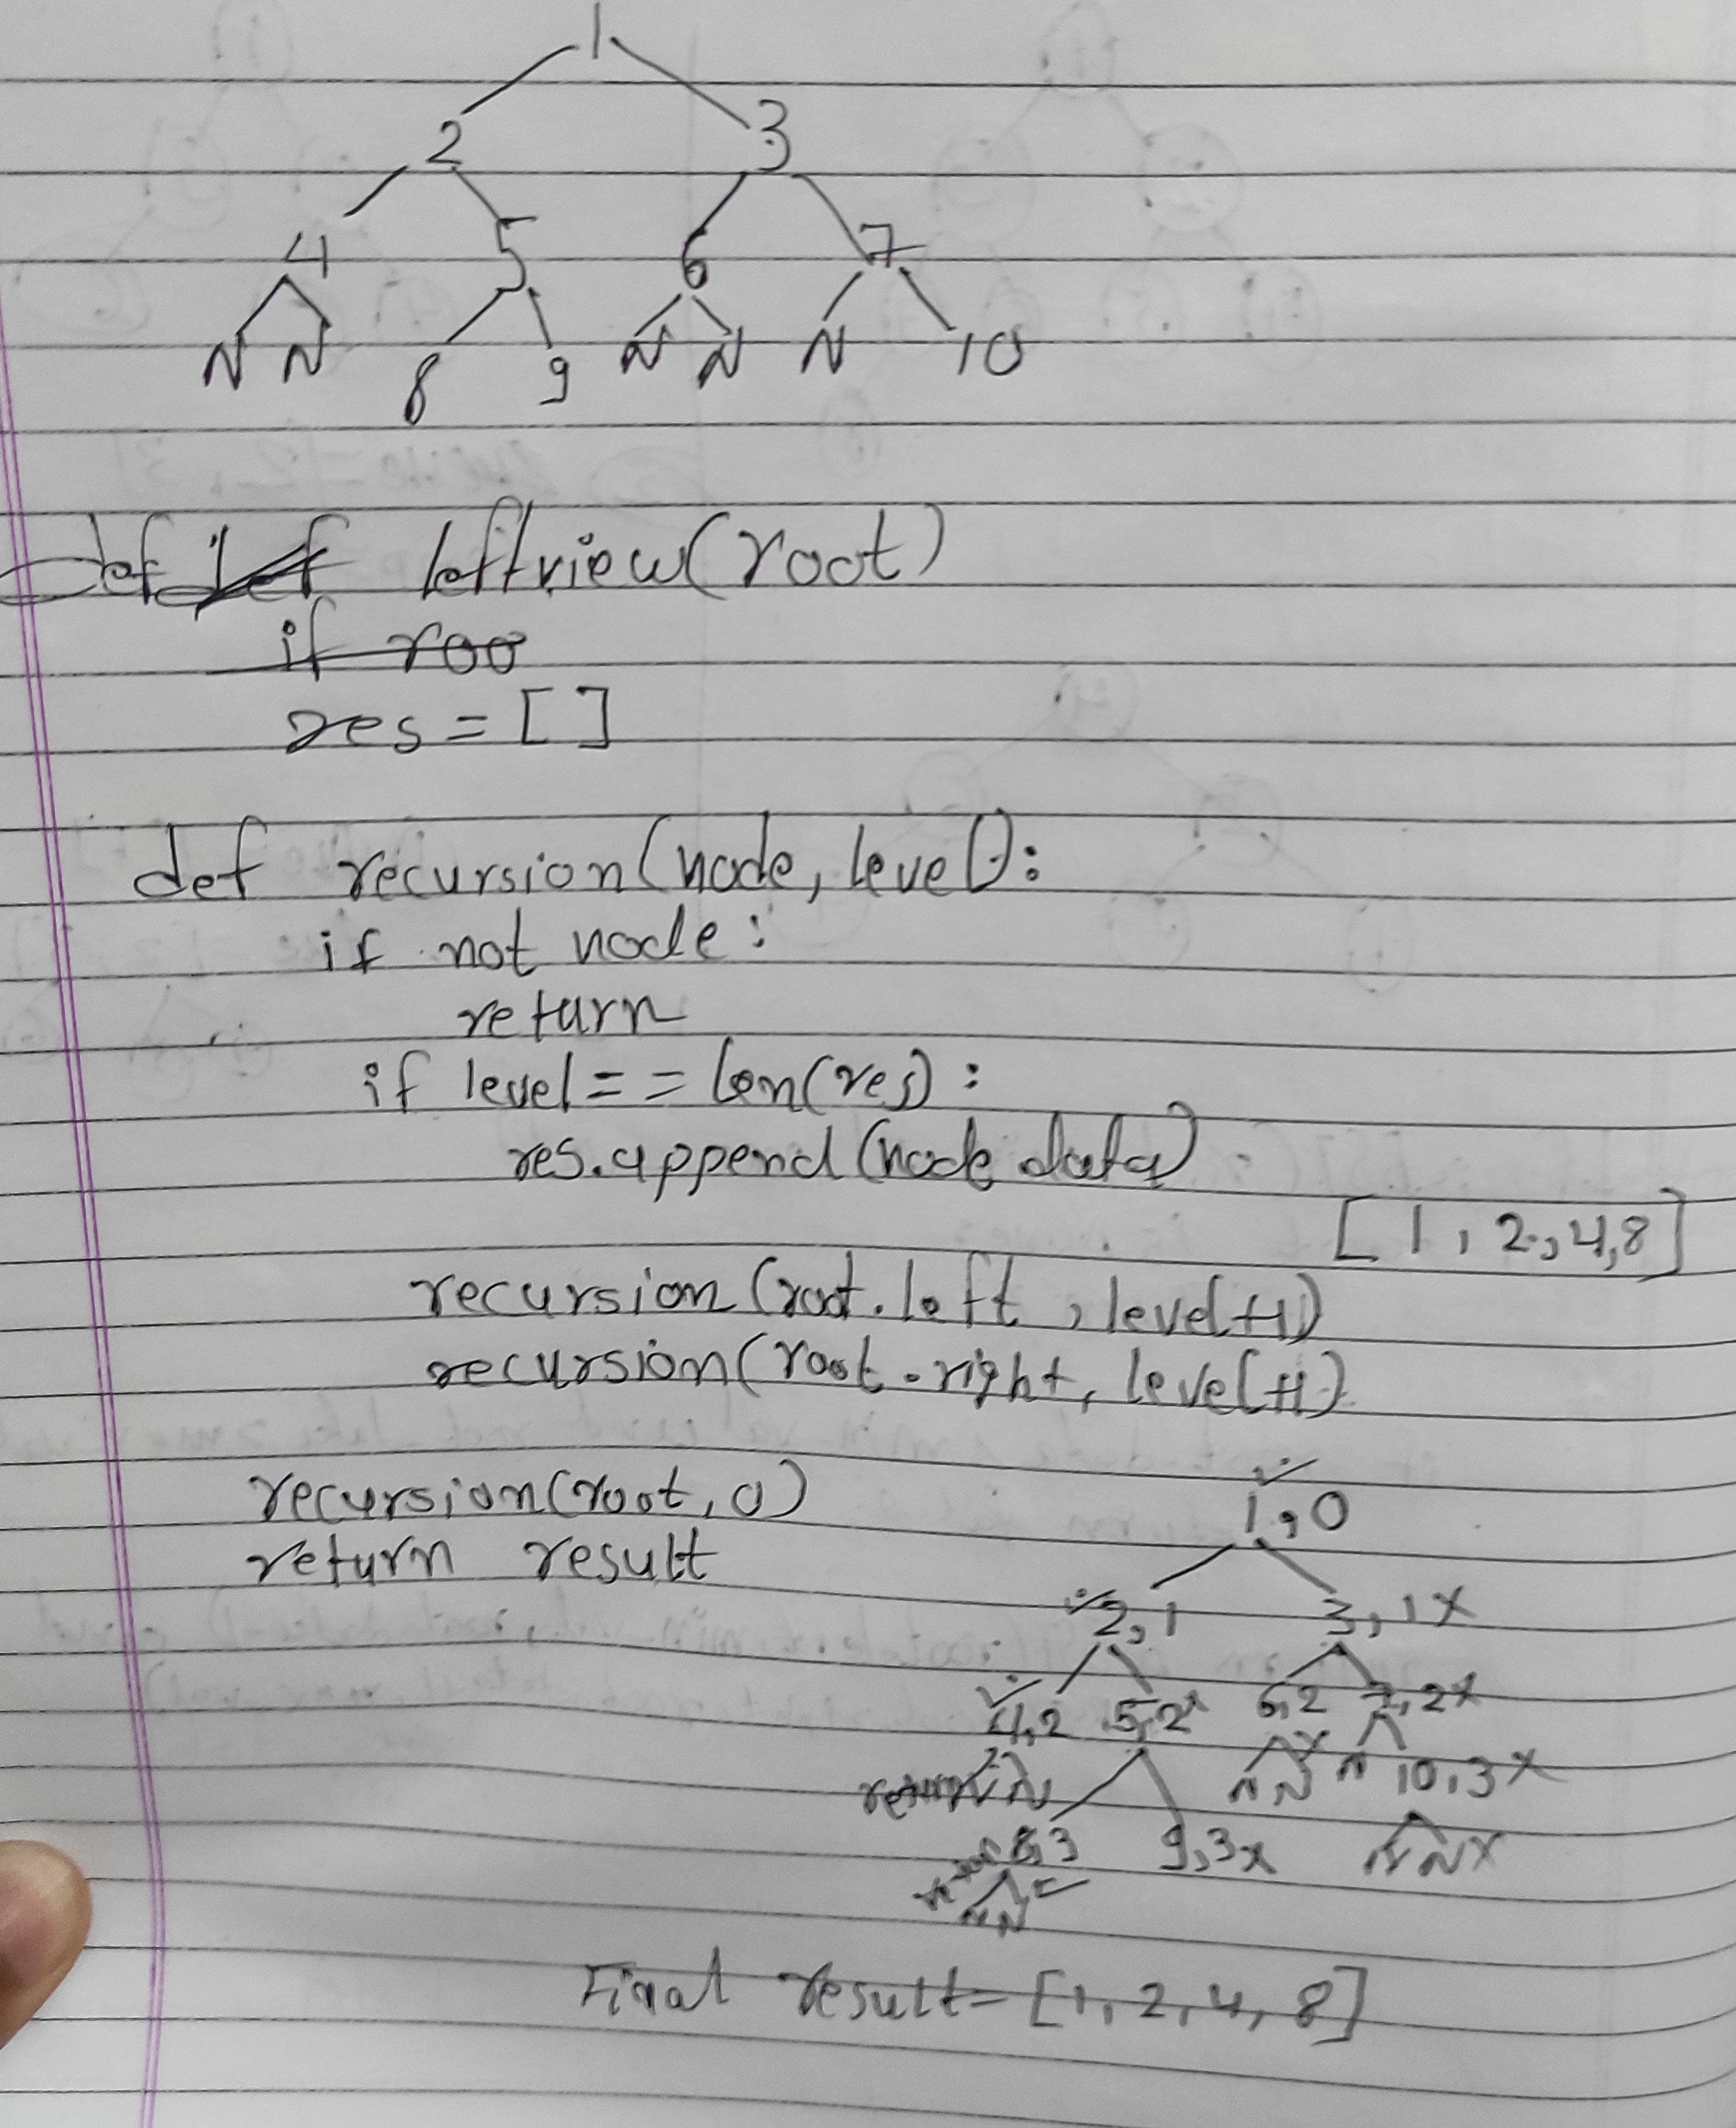 1
2 3
4 5 6 7
N N 8 9 N N N 10
def leftview(root)
if roo
res = [ ]
def recursion(node, level):
if not node:
return
if level == len(res):
res.append(node.data)
[1, 2, 4, 8]
recursion(root.left, level+1)
recursion(root.right, level+1)
recursion(root, 0)
return result
1, 0
2, 1 3, 1 x
4, 2 5, 2 x 6, 2 7, 2 x
return N N N N x N 10, 3 x
8, 3 9, 3 x N N x
return N N
Final result = [1, 2, 4, 8]